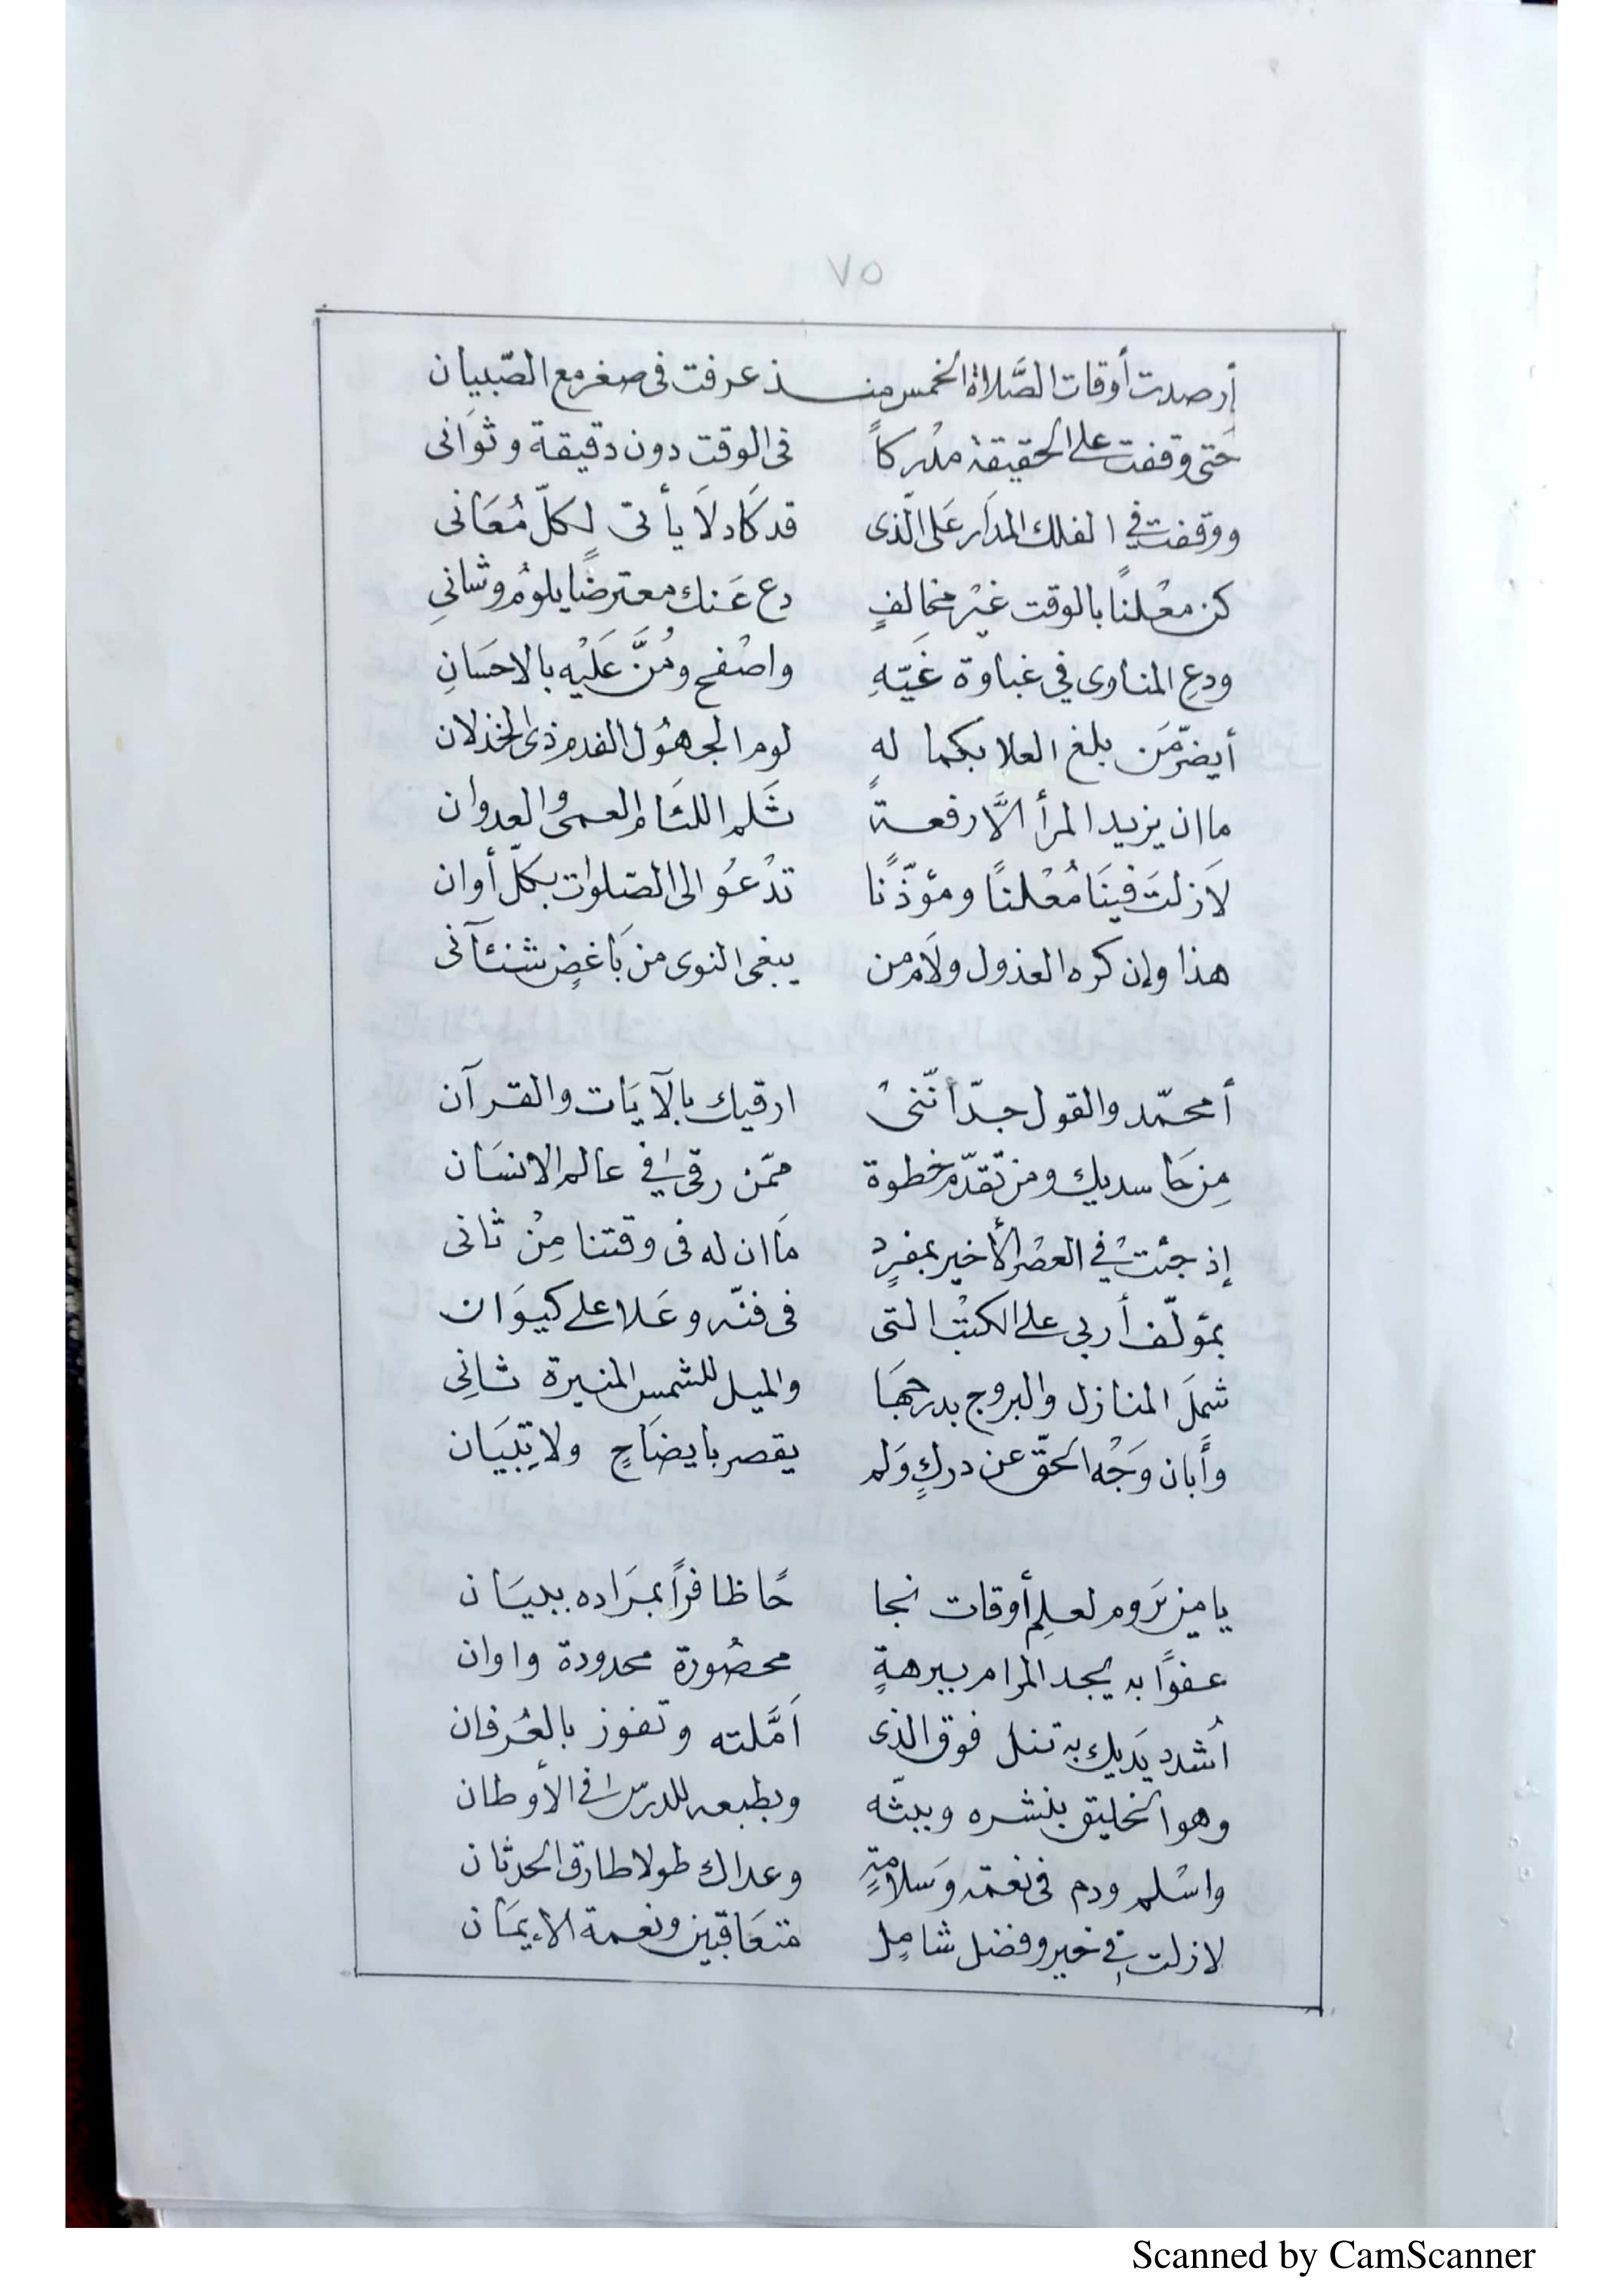 ٧٥
أرصدت أوقات الصَّلاة الخمس منـــذ عرفت فى صغر مع الصّبيان
حَتى وقفت على الحقيقة مدْركاً فى الوقت دون دقيقة وثوَانى
ووقفت في الفلك المدَار عَلى الّذى قد كَاد لَا يأتى لِكلّ مُعَانى
كن معْلنًا بالوقت غيْر مخالفٍ دع عَنك معترضًا يلومُ وشانىِ
ودعِ المناوى في غباوة غَيّهِ واصْفح ومُنَّ عَليْه بالاحسَانِ
أيضرّ مَن بلغ العلا بكماله لوم الجهُول الفدم ذى الخذلان
ما ان يزيد المرأ الَّا رفعـةً ثَلم اللئَام العمى والعدوان
لَا زلتَ فينَا مُعْلنًا ومؤذّنًا تدْعُو الى الصّلوات بكلّ أوان
هذا وإن كره العذول ولَام من يبغى النوى من بَاغضٍ شنئآنى
أمحمّد والقول جدّ أنّنىْ ارقيك بالآيَات والقرآن
مِن حَاسديك ومن تَقدّم خطوة ممّن رقى في عالم الانسَان
إذ جئتْ في العصْر الأخير بمفردٍ مَا ان له فى وقتنا مِنْ ثانى
بمؤلّف أربى على الكتْب التى فى فنّه وعَلا على كيوَان
شمَلَ المنازل والبروج بدرجهَا والميل للشمس المنيرة ثانِى
وأَبان وَجْه الحقّ عن دركٍ وَلم يقصر بايضَاحٍ ولا تِبْيَان
يا من يَروم لعلِم أوقات نجا حًا ظافرًا بمرَاده ببيَان
عفوًا به يجد المرام ببرهةٍ محصُورة محدودة واوان
اُشدد يَديك به تنل فوق الذى اَمَّلته وتفوز بالعُرفان
وهو الخليق بنشره وببثّه وبطبعه للدرس في الأوطان
واسْلم ودم فى نعمة وَسلامةٍ وعداك طولا طارق الحدثان
لا زلت في خير وفضل شامِل متعَاقبين ونعمة الإيمَان
Scanned by CamScanner